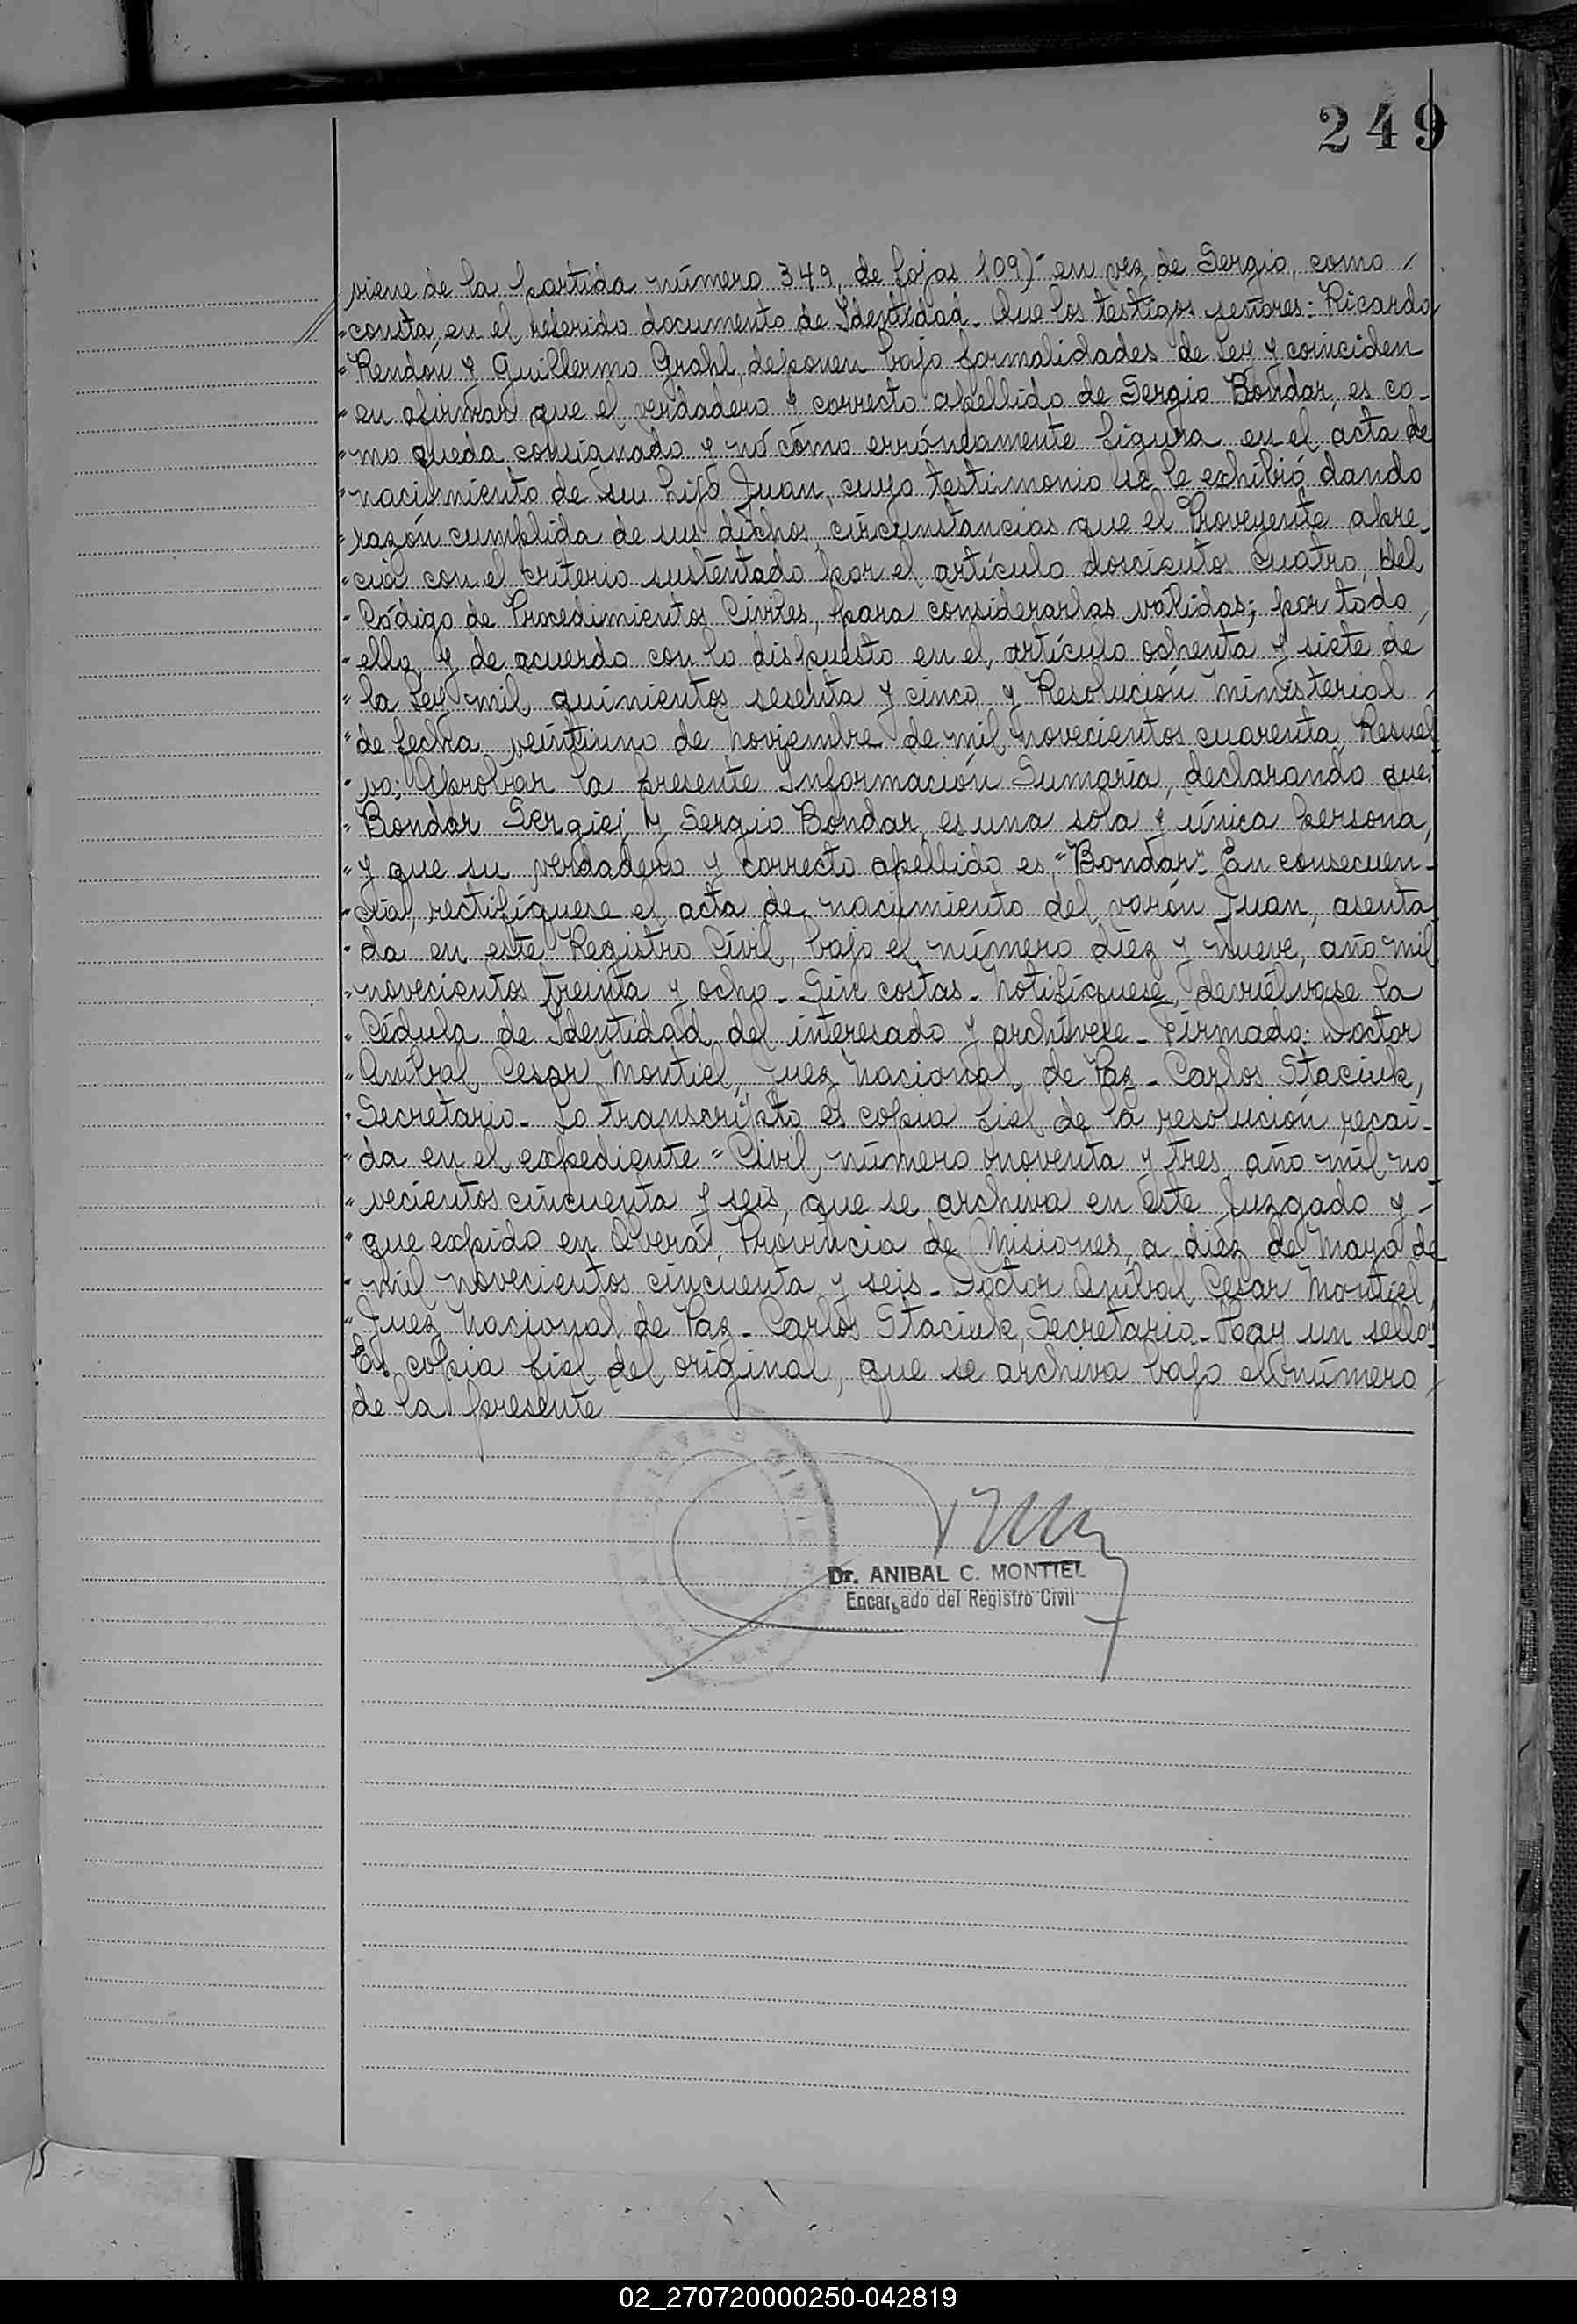 249
viene de la partida número 349, de fojas 109)- en vez de Sergio, como /
"consta, en el referido documento de Identidad. Que los testigos señores: Ricardo
"Rendón y Guillermo Grahl, deponen bajo formalidades de Ley y coinciden
"en afirmar que el verdadero y correcto apellido de Sergio Bondar, es co-
"mo queda consignado y nó cómo erróneamente figura en el acta de
"nacimiento de su hijo Juan, cuyo testimonio se le exhibió dando
"razón cumplida de sus dichos, circunstancias que el Proveyente apre-
"cia con el criterio sustentado por el artículo doscientos cuatro, del
"Código de Procedimientos Civiles, para considerarlas válidas; por todo
"ello y de acuerdo con lo dispuesto en el artículo ochenta y siete de
"la Ley mil quinientos sesenta y cinco y Resolución Ministerial
"de fecha veintiuno de Noviembre de mil novecientos cuarenta, Resuel
"vo: Aprobar la presente Información Sumaria, declarando que:
"Bondar Sergiej y Sergio Bondar, es una sola y única persona,
"y que su verdadero y correcto apellido es "Bondar". En consecuen-
"cia, rectifíquese el acta de nacimiento del varón Juan, asenta
"da en este Registro Civil, bajo el número diez y nueve, año mil
"novecientos treinta y ocho. Sin costas. Notifíquese, devuélvase la
"Cédula de Identidad del interesado y archívese. Firmado: Doctor
"Aníbal Cesar Montiel, Juez Nacional de Paz. Carlos Staciuk,
"Secretario. Lo transcripto es copia fiel de la resolución recaí-
"da en el expediente "Civil, número noventa y tres, año mil no
"vecientos cincuenta y seis, que se archiva en este Juzgado y -
"que expido en Oberá, Provincia de Misiones, a diez de Mayo de
"mil novecientos cincuenta y seis. Doctor Aníbal Cesar Montiel,
"Juez Nacional de Paz. Carlos Staciuk, Secretario. Hay un sello".
Es copia fiel del original, que se archiva bajo el número /
de la presente
Dr. ANIBAL C. MONTIEL
Encargado del Registro Civil
02_270720000250-042819